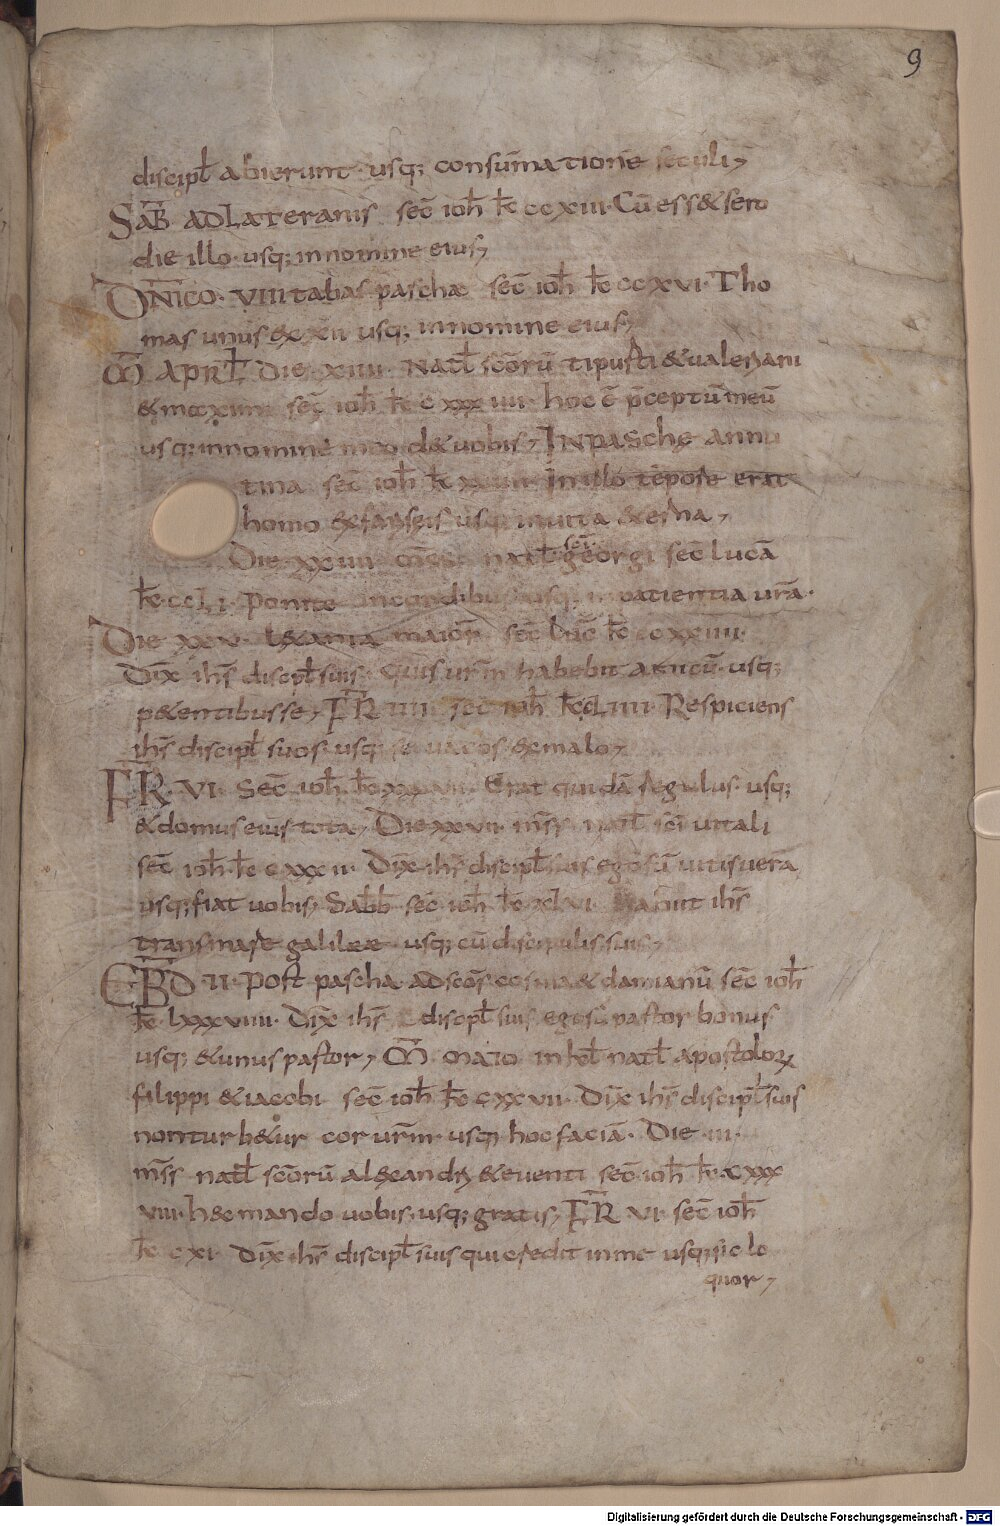 9
discipl̄ abierunt · usq; consūmatione seculi,
SAB̄ ADLATERANIS sec̄ ioh̄ k̄e ccxiii · Cū ess& sero
die illo · usq; innomine eius,
DN̄ICO · VIII tabas paschæ sec̄ ioh̄ k̄e ccxvi · Tho
mas unus ex xii usq; innomine eius,
M̄ APRL̄ Die xiiii Nat̄l sc̄orū tiburti & ualeriani
& maximi sec̄ ioh̄ k̄e cxxxiiii · hoc ē p̄ceptū meū
usq; innomine meo d& uobis, INPASCHE anno
tina sec̄ ioh̄ k̄e In illo tēpore erat
homo ex fariseis usq; inuita &erna,
Die xxiiii nat̄l sc̄i georgi sec̄ lucā
k̄e ccli · Ponite incordibus usq; inpatientia ur̄a ·
Die xxv · L&ania maior̄ sec̄ luc̄ k̄e cxxiiii ·
Dix̄ ih̄s discipl̄ suis · Quis ur̄m habebit amicū · usq;
p&entibus se, FR̄ IIII sec̄ ioh̄ Respiciens
ih̄s discipl̄ suos · usq; seruæos exmalo,
FR̄ · VI · Sec̄ ioh̄ k̄e Erat quidā regulus · usq;
& domus eius tota, Die xxvii · mn̄s nat̄l sc̄i uitali
sec̄ ioh̄ k̄e cxxxii · Dix̄ ih̄s discipl̄ suis egosū uitis uera
usq; fiat uobis, Sabb̄ sec̄ ioh̄ k̄e xlvi · Habiit ih̄s
transmare galileæ usq; cū discipulis suis,
EBD̄ II · Post pascha · ad sc̄os cosma & damianū sec̄ ioh̄
k̄e lxxxviiii · Dix̄ ih̄s discipl̄ suis egosū pastor bonus
usq; & unus pastor, M̄ MAIO in kl̄ nat̄l apostolorꝝ
filippi & iacobi sec̄ ioh̄ k̄e cxxvii · Dix̄ ih̄s discipl̄ suis
nonturb&ur cor ur̄m · usq; hoc faciā · Die iii ·
mn̄s nat̄l sc̄orū alexandri & euenti sec̄ ioh̄ k̄e · cxxx
viii · hæc mando uobis, usq; gratis, FR̄ VI · sec̄ ioh̄
k̄e cxi · Dix̄ ih̄s discipl̄ suis qui credit inme usq; sic lo
quor,
Digitalisierung gefördert durch die Deutsche Forschungsgemeinschaft - DFG